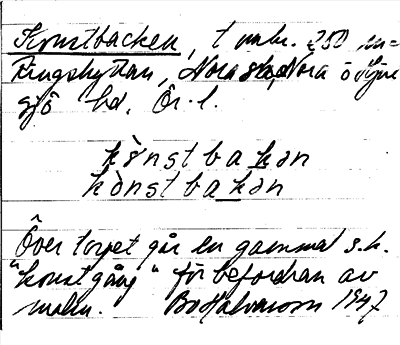 Konstbacken, t under 250 m =
Ringshyttan, Nora stads, Nora övlfve
sjö hd. Ör. l.
kònstbakan
kònstbakan
Över torpet går en gammal s.k.
"konstgång" för befordran av
malm. Bo Halvarsson 1947